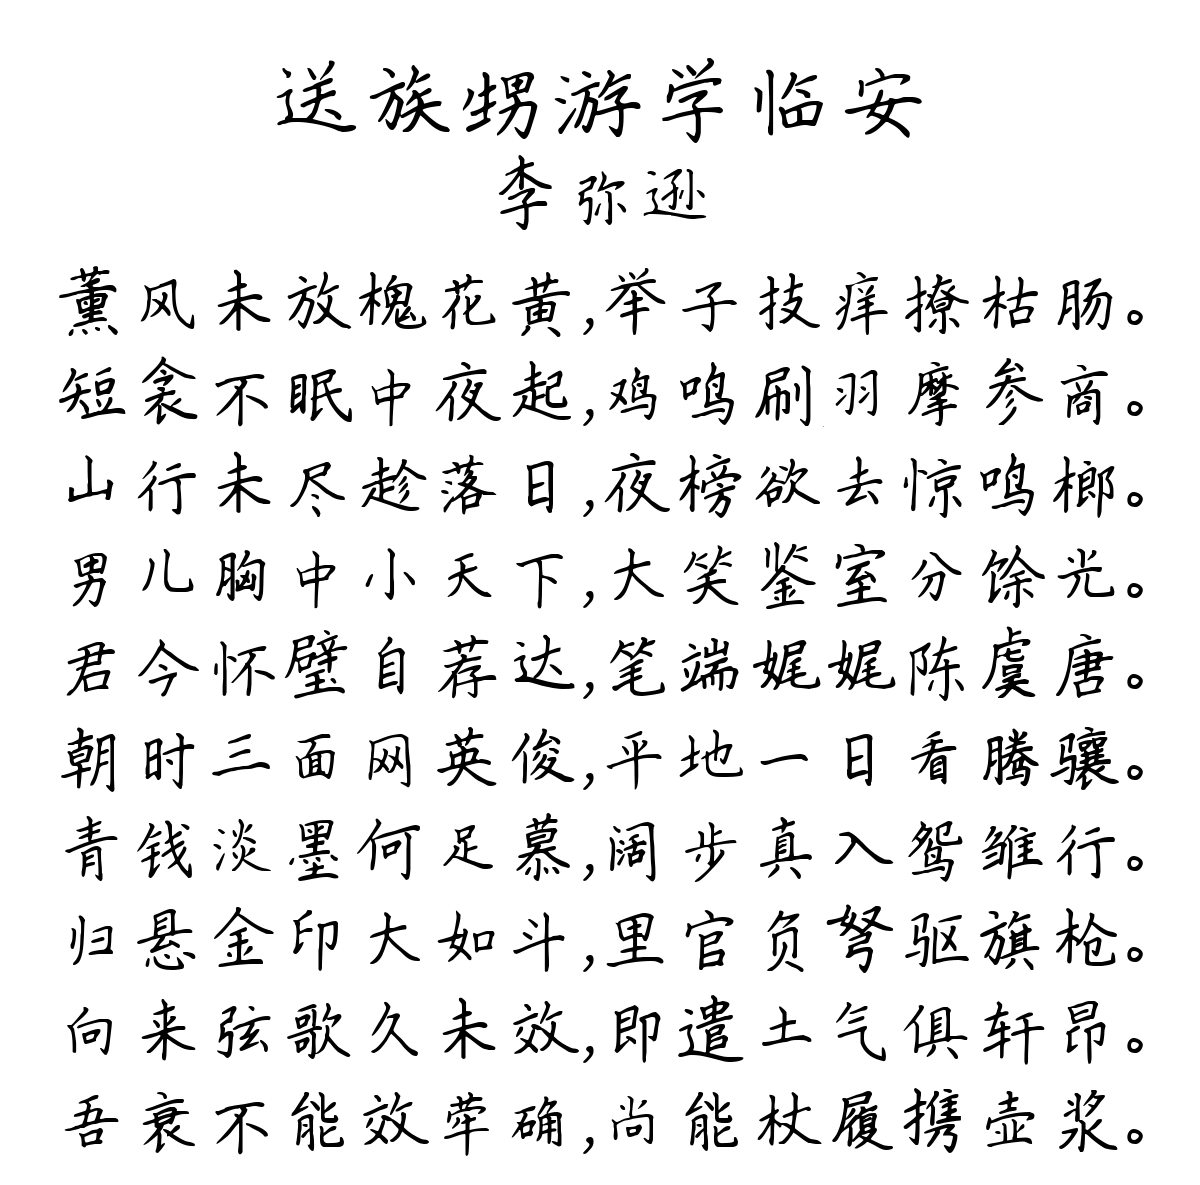 送族甥游学临安
李弥逊
薰风未放槐花黄,举子技痒撩枯肠。
短衾不眠中夜起,鸡鸣刷羽摩参商。
山行未尽趁落日,夜榜欲去惊鸣榔。
男儿胸中小天下,大笑鉴室分馀光。
君今怀璧自荐达,笔端娓娓陈虞唐。
朝时三面网英俊,平地一日看腾骧。
青钱淡墨何足慕,阔步真入鸳雏行。
归悬金印大如斗,里官负弩驱旗枪。
向来弦歌久未效,即遣土气俱轩昂。
吾衰不能效荦确,尚能杖履携壶浆。